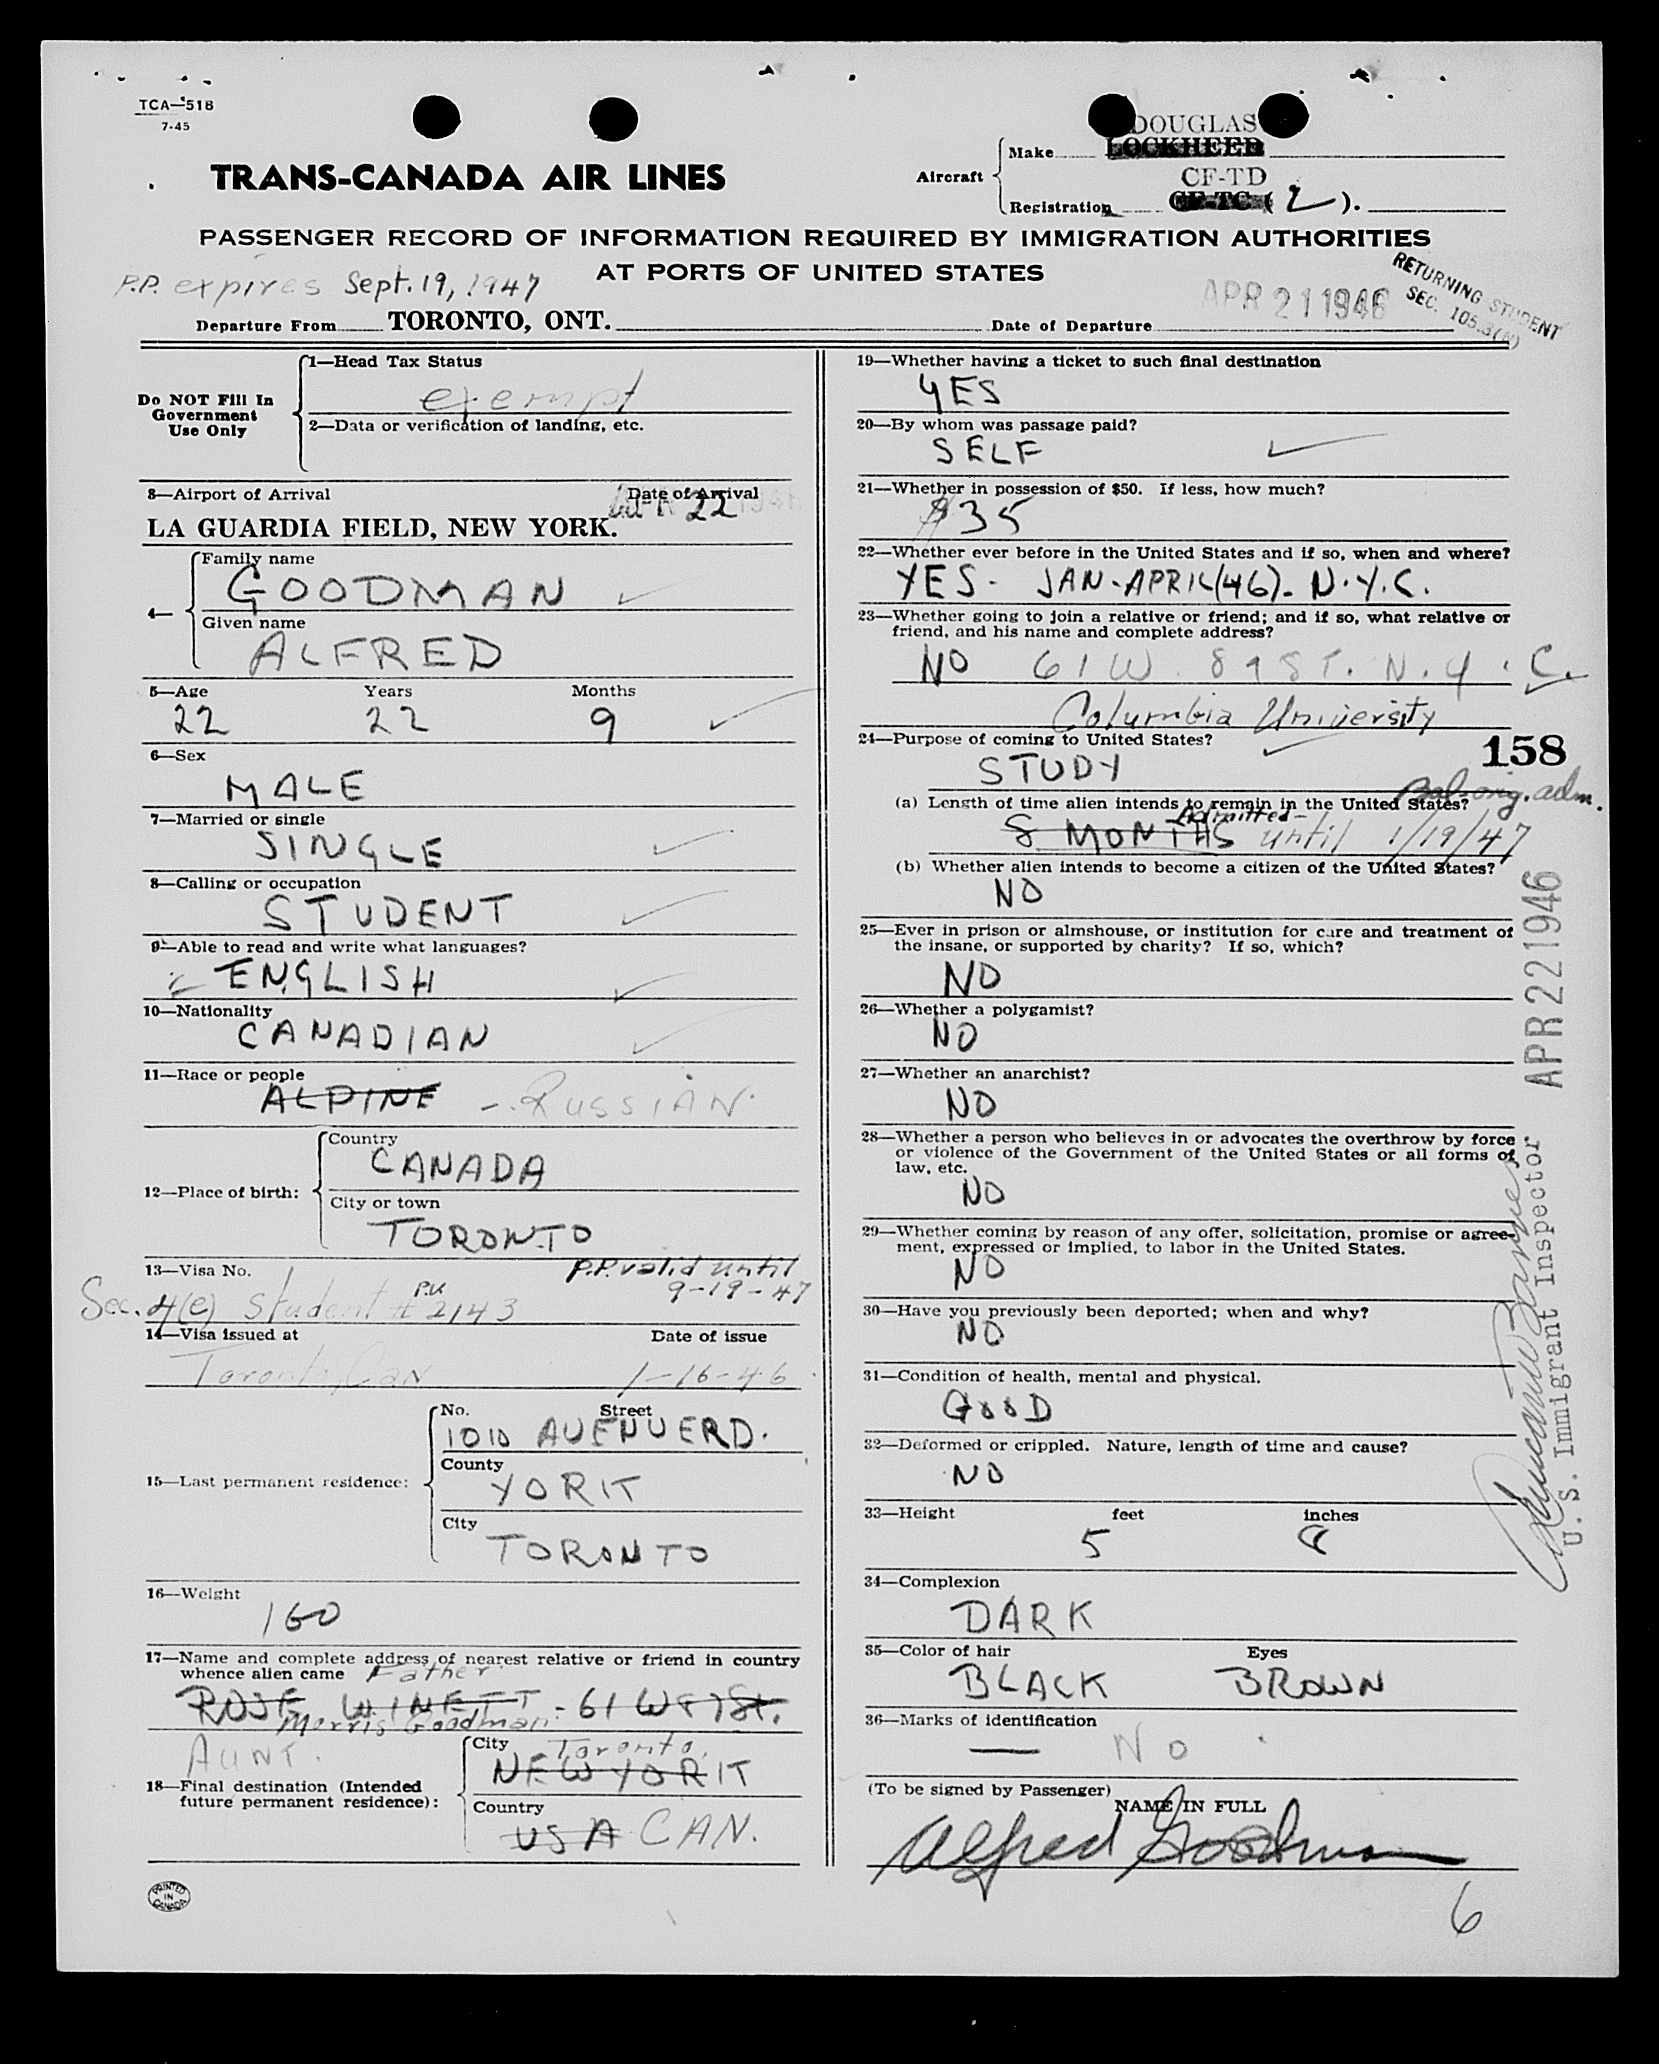 TCA—518
7-45
TRANS-CANADA AIR LINES
Aircraft
Make
DOUGLAS
LOCKHEED
Registration
CF-TD
CF-TC ( 2 ).
PASSENGER RECORD OF INFORMATION REQUIRED BY IMMIGRATION AUTHORITIES
AT PORTS OF UNITED STATES
P.P. expires Sept. 19, 1947
APR 21 1946
RETURNING STUDENT
SEC. 105.3(N)
Departure From TORONTO, ONT.
Date of Departure
Do NOT Fill In
Government
Use Only
1—Head Tax Status
exempt
2—Data or verification of landing, etc.
3—Airport of Arrival
Date of Arrival
LA GUARDIA FIELD, NEW YORK.
APR 22 1946
4—
Family name
GOODMAN
Given name
ALFRED
5—Age Years Months
22 22 9
6—Sex
MALE
7—Married or single
SINGLE
8—Calling or occupation
STUDENT
9—Able to read and write what languages?
ENGLISH
10—Nationality
CANADIAN
11—Race or people
ALPINE - RUSSIAN.
12—Place of birth:
Country
CANADA
City or town
TORONTO
13—Visa No.
P.P. valid until
9-19-47
Sec. 4(e) Student # 2143
14—Visa issued at Date of issue
Toronto, Can 1-16-46
15—Last permanent residence:
No. Street
1010 AVENUE RD.
County
YORK
City
TORONTO
16—Weight
160
17—Name and complete address of nearest relative or friend in country
whence alien came Father
ROSE WINETT - 61 W 89 St.
Morris Goodman
AUNT.
18—Final destination (Intended
future permanent residence):
City Toronto.
NEW YORK
Country
USA CAN.
PRINTED
IN
CANADA
19—Whether having a ticket to such final destination
YES
20—By whom was passage paid?
SELF
21—Whether in possession of $50. If less, how much?
$35
22—Whether ever before in the United States and if so, when and where?
YES - JAN-APRIL(46)- N.Y.C.
23—Whether going to join a relative or friend; and if so, what relative or
friend, and his name and complete address?
NO 61 W. 89 ST. N.Y.C.
Columbia University
24—Purpose of coming to United States?
STUDY
158
Bal. orig. adm.
(a) Length of time alien intends to remain in the United States?
Admitted-
8 MONTHS until 1/19/47
(b) Whether alien intends to become a citizen of the United States?
NO
25—Ever in prison or almshouse, or institution for care and treatment of
the insane, or supported by charity? If so, which?
NO
26—Whether a polygamist?
NO
27—Whether an anarchist?
NO
28—Whether a person who believes in or advocates the overthrow by force
or violence of the Government of the United States or all forms of
law, etc.
NO
29—Whether coming by reason of any offer, solicitation, promise or agree-
ment, expressed or implied, to labor in the United States.
NO
30—Have you previously been deported; when and why?
NO
31—Condition of health, mental and physical.
GOOD
32—Deformed or crippled. Nature, length of time and cause?
NO
33—Height feet inches
5 8
34—Complexion
DARK
35—Color of hair Eyes
BLACK BROWN
36—Marks of identification
— NO
(To be signed by Passenger)
NAME IN FULL
Alfred Goodman
6
APR 22 1946
U. S. Immigrant Inspector